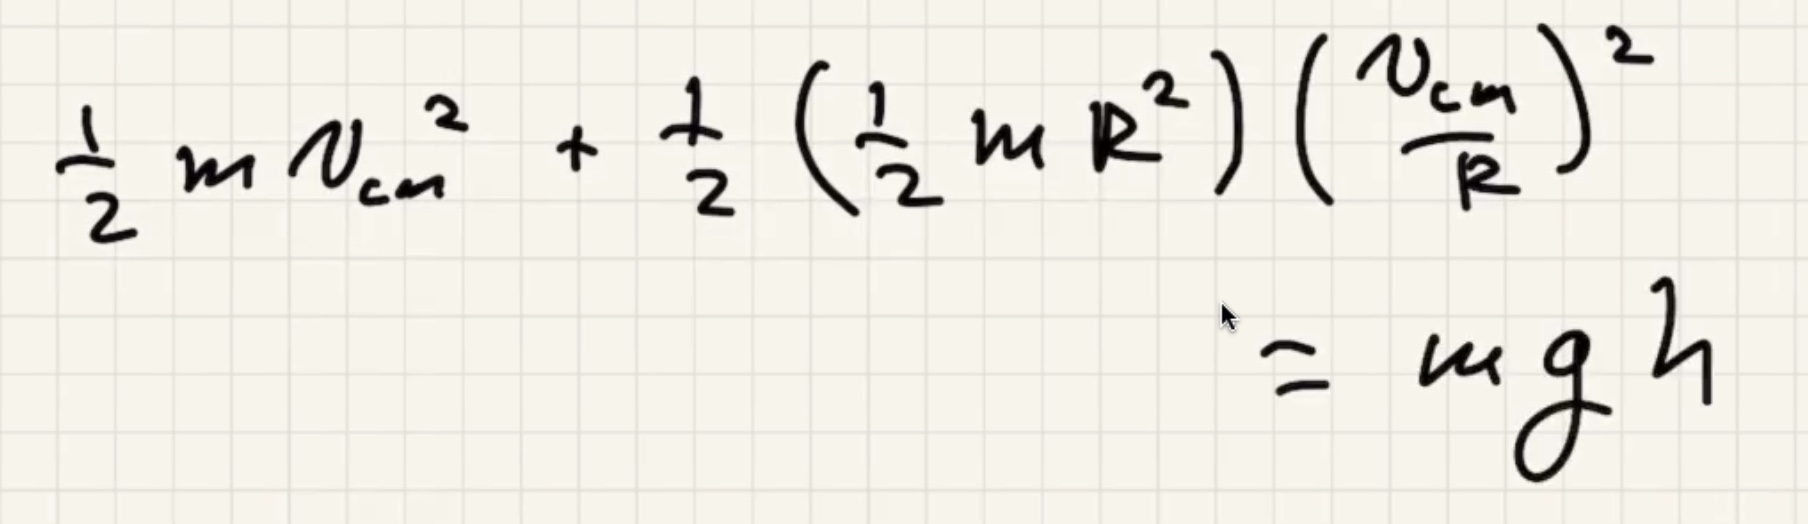 ½ m v_cm² + ½ (½ m R²) (v_cm/R)²
= m g h